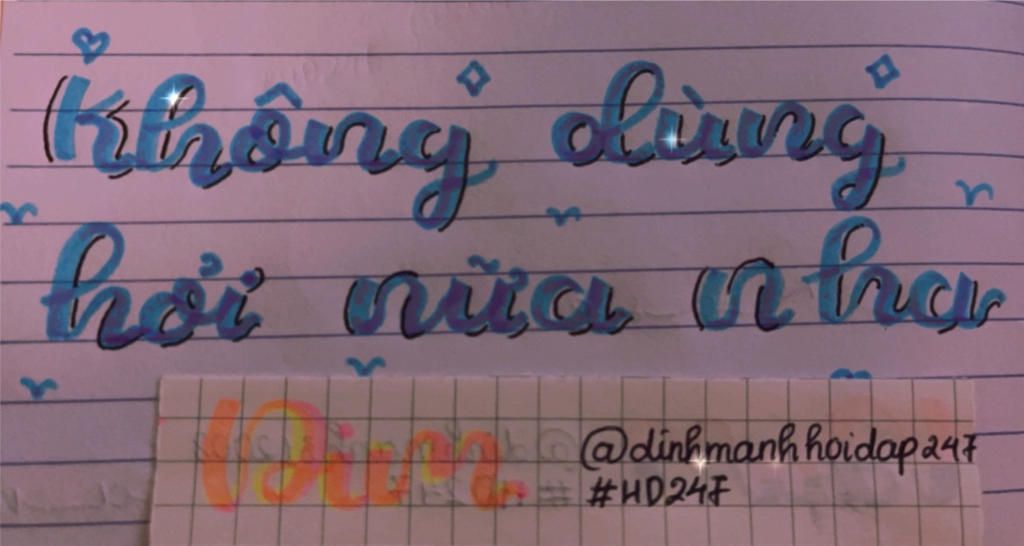 Không dùng
hỏi nữa nha
Bim
@dinhmanhhoidap247
#HD247